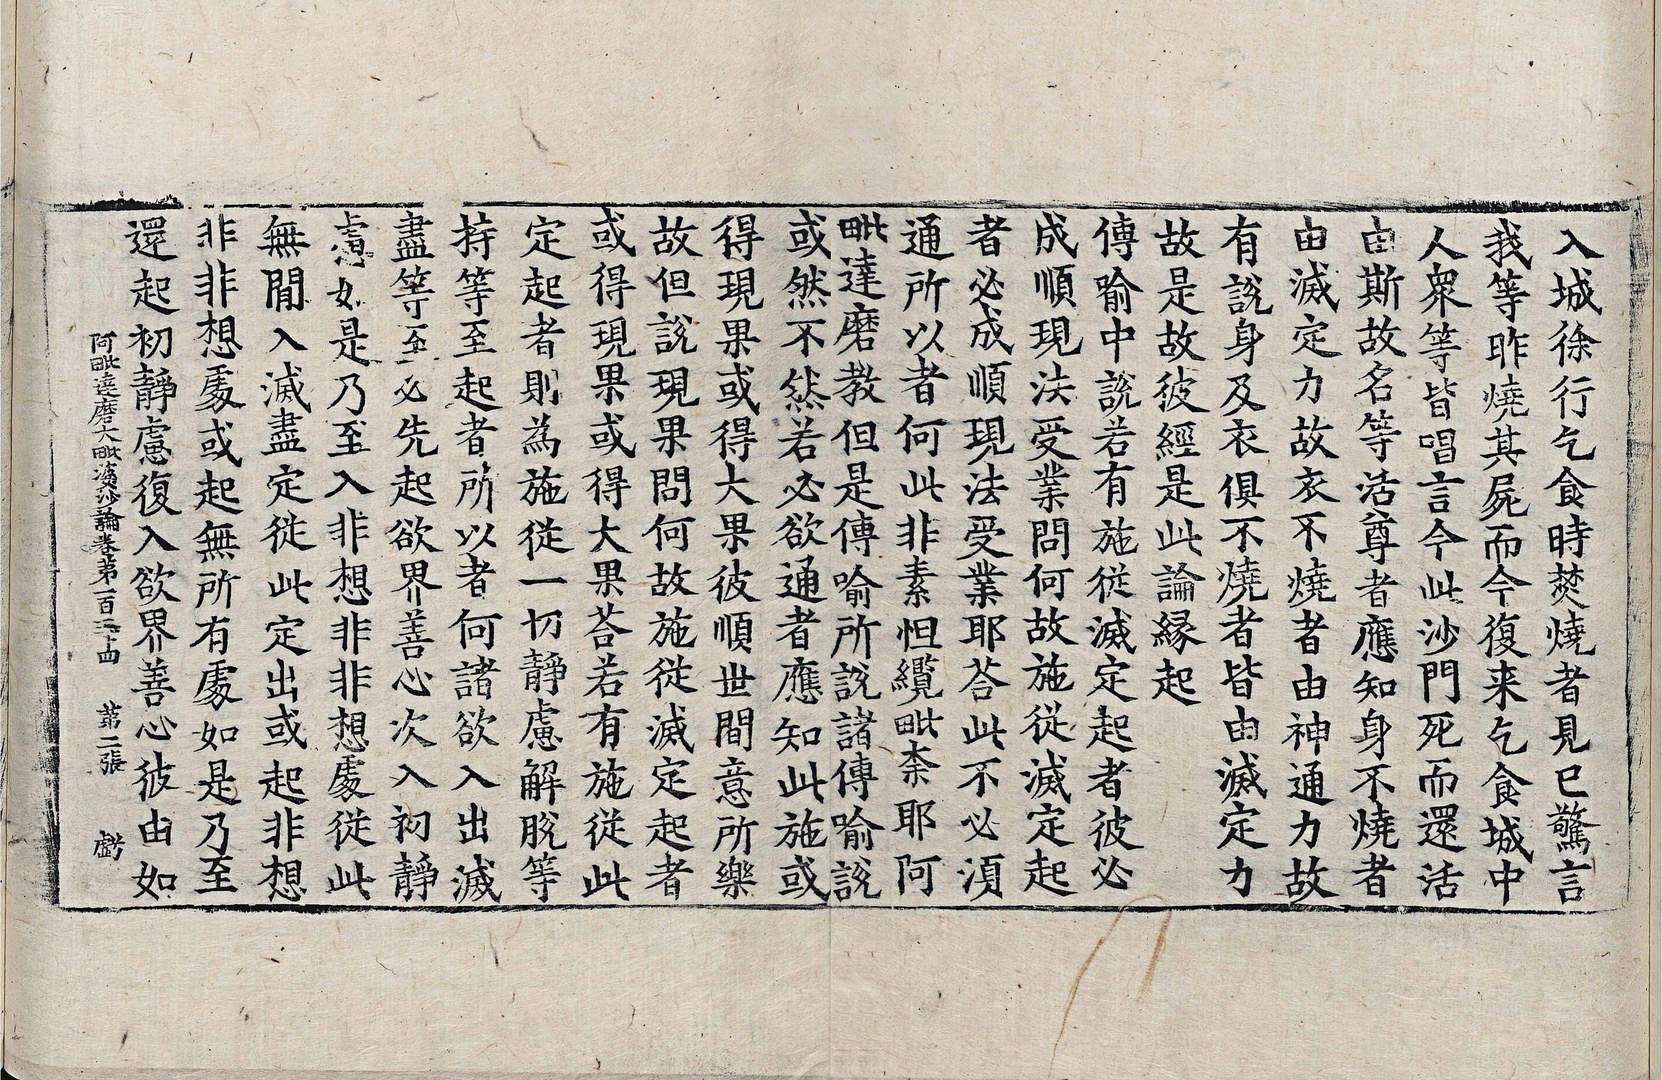 入城徐行乞食時焚燒者見已驚言
我等昨燒其屍而今復来乞食城中
人衆等皆唱言今此沙門死而還活
由斯故名等活尊者應知身不燒者
由滅定力故衣不燒者由神通力故
有說身及衣俱不燒者皆由滅定力
故是故彼經是此論緣起
傳喻中說若有施從滅定起者彼必
成順現法受業問何故施從滅定起
者必成順現法受業耶荅此不必湏
通所以者何此非素怛纜毗柰耶阿
毗達磨教但是傳喻所說諸傳喻說
或然不然若必欲通者應知此施或
得現果或得大果彼順世間意所樂
故但說現果問何故施從滅定起者
或得現果或得大果荅若有施從此
定起者則為施從一切靜慮解脫等
持等至起者所以者何諸欲入出滅
盡等至必先起欲界善心次入初靜
慮如是乃至入非想非非想處從此
無間入滅盡定從此定出或起非想
非非想處或起無所有處如是乃至
還起初靜慮復入欲界善心彼由如
阿毗達磨大毗婆沙論卷第一百五十四 第二張 虧